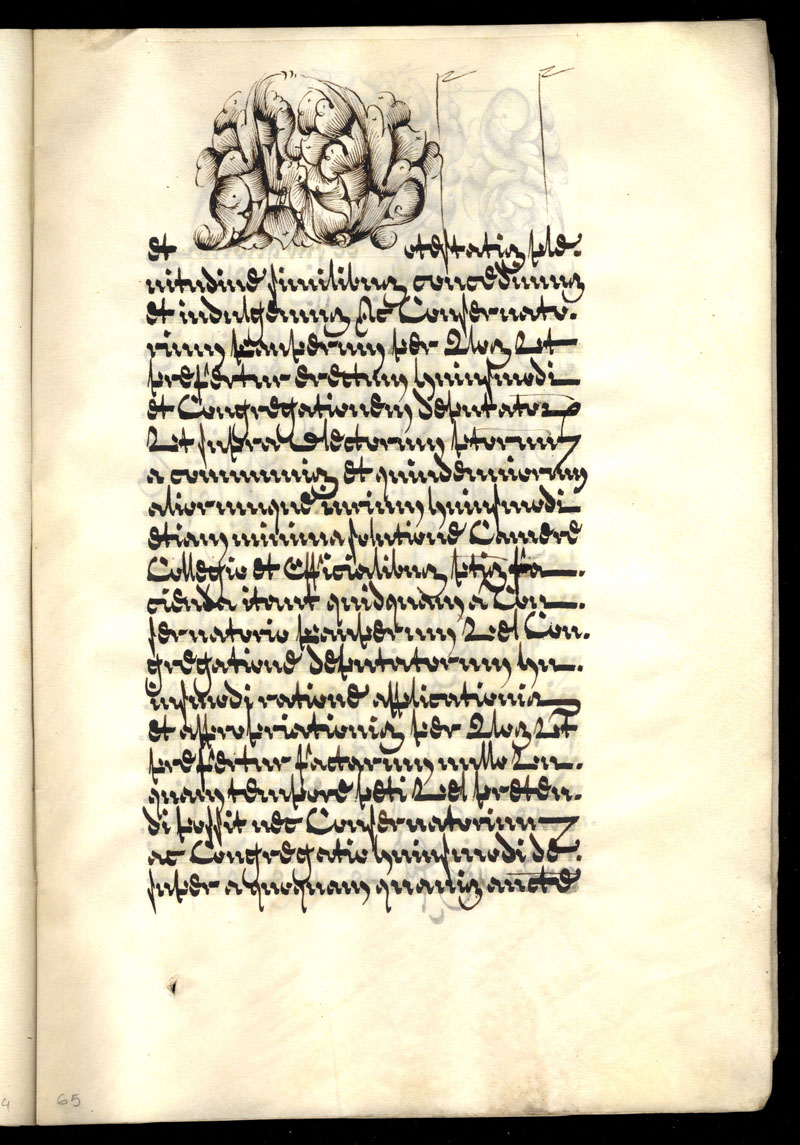 et otestatis ple.
nitudine similibus concedimus
et indulgemus Ac Conservato.
rium pauperum per Nos Ut
prefertur erectum huiusmodi
et Congregationem deputator
Ut supra electorum
a communis et quindenniorum
aliorumque iurium huiusmodi
etiam minima solutione Camere
Collegio et Officialibus ptis fa.
cienda itaut quidquam a Con.
servatorio pauperum Vel Con.
gregatione deputatorum hu.
iusmodi ratione applicationis
et appropriationis per Nos Ut
prefertur factarum nullo Un.
quam tempore peti Vel preten.
di possit nec Conservatorium
ac Congregatio huiusmodi de.
super a quoquam quavis aucte
65